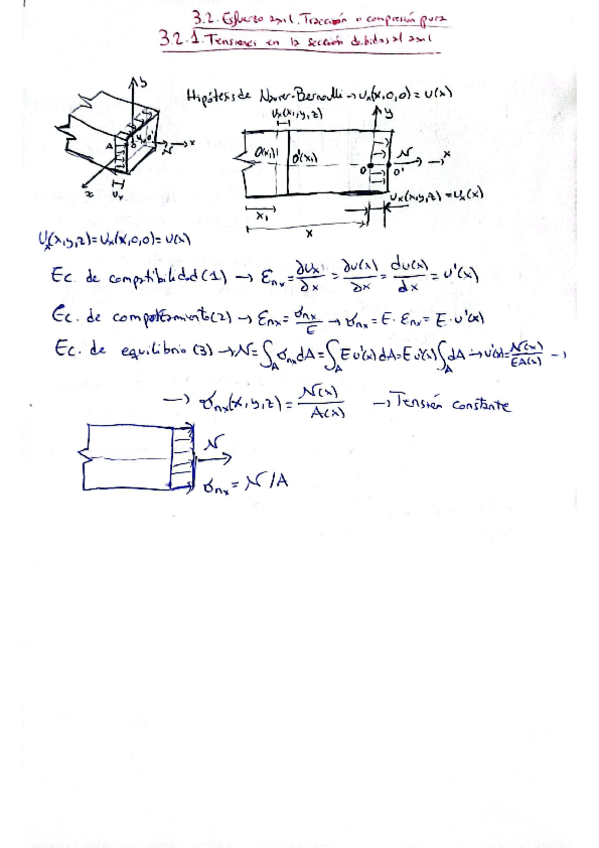 3.2. Esfuerzo axil. Tracción o compresión pura
3.2.1. Tensiones en la sección debidas al axil
Hipótesis de Navier-Bernoulli → Ux(x,0,0) = U(x)
Ux(x,y,z)
y
y
A
N
x
z
Ux
O(x1)
O'(x1)
N
x
O
O'
Ux(x,y,z) = Ux(x)
x1
x
Ux(x,y,z) = Ux(x,0,0) = U(x)
Ec. de compatibilidad (1) → εnx = ∂Ux/∂x = ∂U(x)/∂x = dU(x)/dx = U'(x)
Ec. de comportamiento (2) → εnx = σnx/E → σnx = E · εnx = E · U'(x)
Ec. de equilibrio (3) → N = ∫A σnx dA = ∫A E U'(x) dA = E U'(x) ∫A dA → U'(x) = N(x)/EA(x) →
→ σnx(x,y,z) = N(x)/A(x) → Tensión constante
N
σnx = N/A